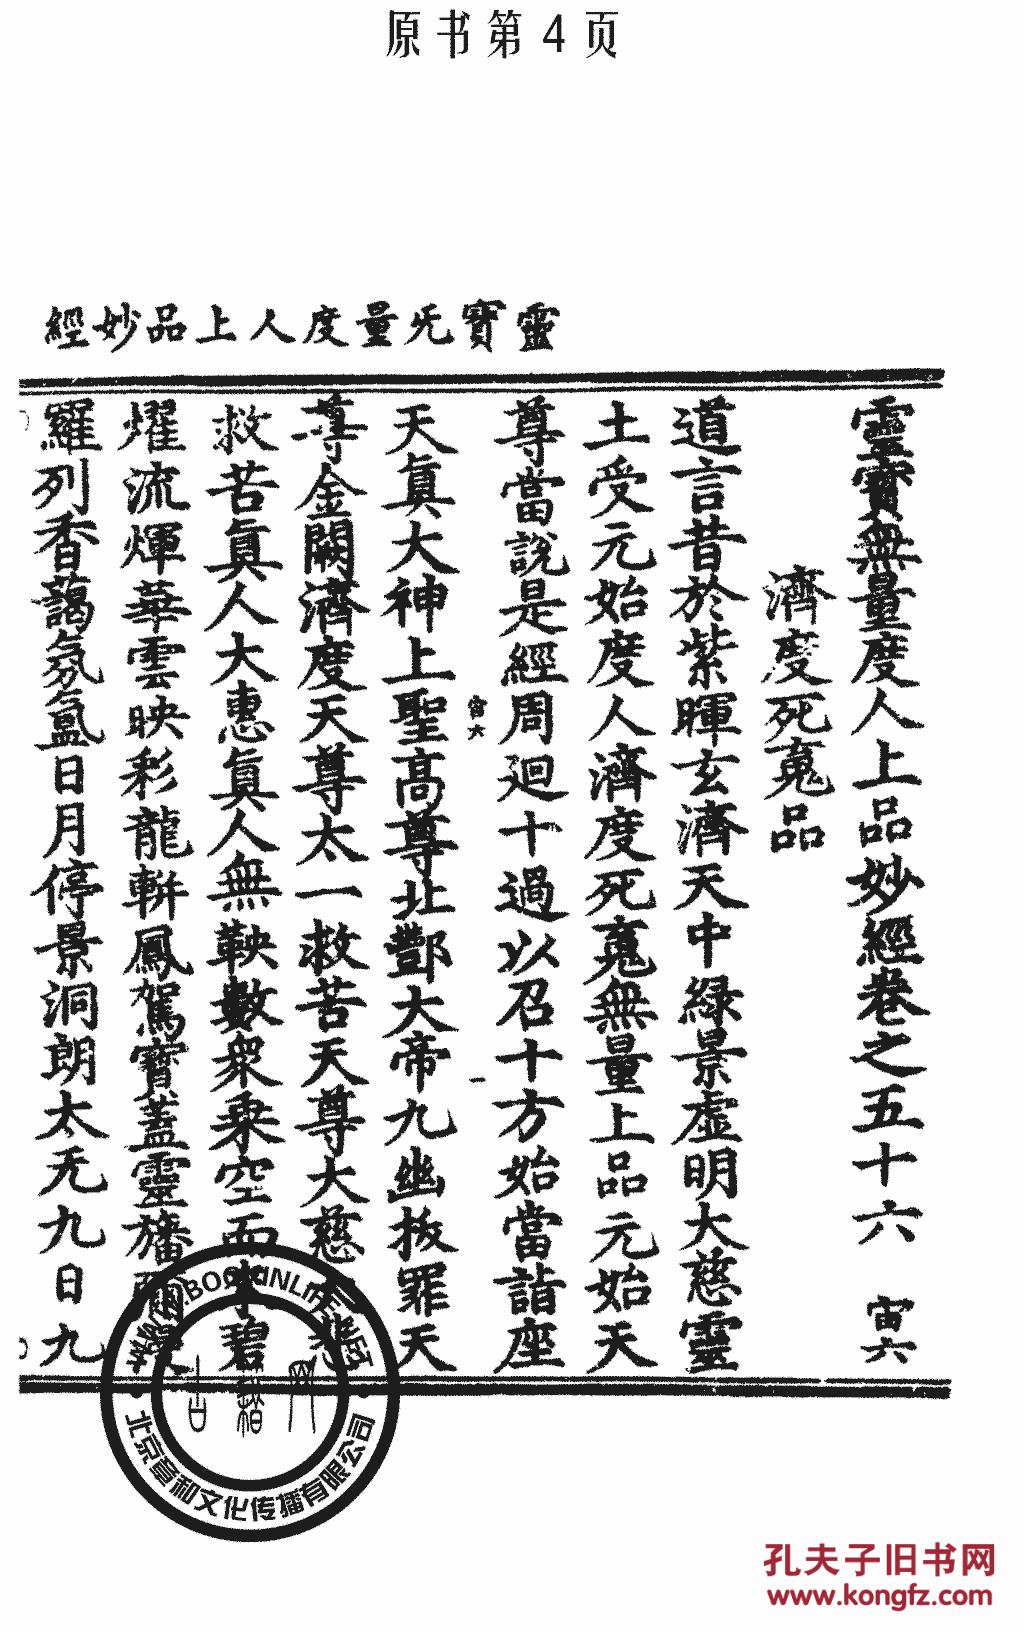 原书第4页
靈寶无量度人上品妙經
靈寶無量度人上品妙經卷之五十六 宙六
濟度死魂品
道言昔於紫暉玄濟天中綠景虛明大慈靈
土受元始度人濟度死魂無量上品元始天
尊當說是經周迴十過以召十方始當詣座
宙六 一
天真大神上聖高尊北酆大帝九幽拔罪天
尊金闕濟度天尊太一救苦天尊大慈大悲
救苦真人大惠真人無鞅數衆乘空而來碧
燿流煇華雲映彩龍軿鳳駕寶蓋靈旛
羅列香藹氛氳日月停景洞朗太无九日九
北京意和文化传播有限公司
孔夫子旧书网
www.kongfz.com